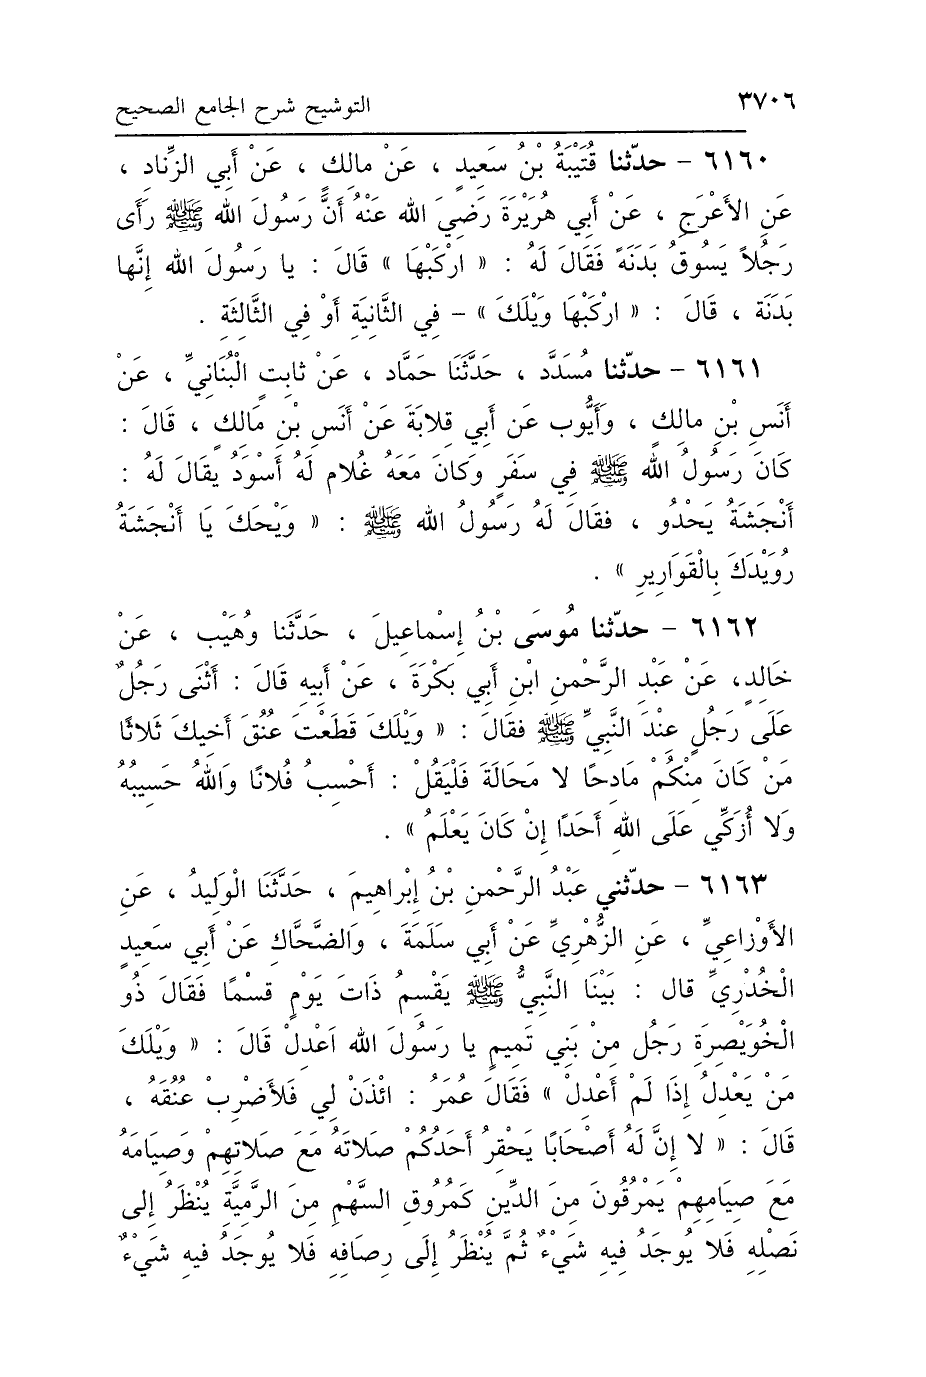 ٣٧٠٦ التوشيح شرح الجامع الصحيح
٦١٦٠ – حدّثنا قُتَيْبَةُ بْنُ سَعِيدٍ ، عَنْ مالِكٍ ، عَنْ أَبي الزِّنادِ ،
عَنِ الأَعْرَجِ ، عَنْ أَبي هُرَيْرَةَ رَضِيَ الله عَنْهُ أَنَّ رَسُولَ الله ﷺ رَأَى
رَجُلاً يَسُوقُ بَدَنَةً فَقَالَ لَهُ : « ارْكَبْهَا » قَالَ : يا رَسُولَ الله إِنَّها
بَدَنَة ، قَالَ : « ارْكَبْهَا وَيْلَكَ » – فِي الثَّانِيَةِ أَوْ فِي الثَّالِثَةِ .
٦١٦١ – حدّثنا مُسَدَّد ، حَدَّثَنَا حَمَّاد ، عَنْ ثابِتٍ الْبُنَانِيِّ ، عَنْ
أَنَسِ بْنِ مالِكٍ ، وَأَيُّوب عَن أَبِي قِلابَةَ عَنْ أَنَسِ بْنِ مَالِكٍ ، قَالَ :
كَانَ رَسُولُ الله ﷺ فِي سَفَرٍ وَكانَ مَعَهُ غُلام لَهُ أَسْوَدُ يقَالَ لَهُ :
أَنْجَشَةُ يَحْدُو ، فقَالَ لَهُ رَسُولُ الله ﷺ : « وَيْحَكَ يَا أَنْجَشَةُ
رُوَيْدَكَ بِالْقَوَارِيرِ » .
٦١٦٢ – حدّثنا مُوسَى بْنُ إِسْماعِيلَ ، حَدَّثَنا وُهَيْب ، عَنْ
خَالِدٍ، عَنْ عَبْدِ الرَّحْمنِ ابْنِ أَبي بَكْرَةَ ، عَنْ أَبِيهِ قَالَ : أَثْنَى رَجُلٌ
عَلَى رَجُلٍ عِنْدَ النَّبِيِّ ﷺ فقَالَ : « وَيْلَكَ قَطَعْتَ عُنُقَ أَخِيكَ ثَلاثًا
مَنْ كَانَ مِنْكُمْ مَادِحًا لا مَحَالَةَ فَلْيَقُلْ : أَحْسِبُ فُلانًا وَاللهُ حَسِيبُهُ
وَلا أُزَكِّي عَلَى اللهِ أَحَدًا إِنْ كَانَ يَعْلَمُ » .
٦١٦٣ – حدّثني عَبْدُ الرَّحْمنِ بْنُ إِبْراهِيمَ ، حَدَّثَنَا الْوَلِيدُ ، عَنِ
الأَوْزاعِيِّ ، عَنِ الزُّهْرِيِّ عَنْ أَبِي سَلَمَةَ ، وَالضَّحَّاكِ عَنْ أَبِي سَعِيدٍ
الْخُدْرِيِّ قال : بَيْنَا النَّبِيُّ ﷺ يَقْسِمُ ذَاتَ يَوْمٍ قِسْمًا فَقَالَ ذُو
الْخُوَيْصِرَةِ رَجُل مِنْ بَنِي تَمِيمٍ يا رَسُولَ الله اَعْدِلْ قَالَ : « وَيْلَكَ
مَنْ يَعْدِلُ إِذَا لَمْ أَعْدِلْ » فَقَالَ عُمَرُ : ائْذَنْ لِي فَلأَضْرِبْ عُنُقَهُ ،
قَالَ : « لا إِنَّ لَهُ أَصْحَابًا يَحْقِرُ أَحَدُكُمْ صَلاتَهُ مَعَ صَلاتِهِمْ وَصِيَامَهُ
مَعَ صِيَامِهِمْ يَمْرُقُونَ مِنَ الدِّينِ كَمُرُوقِ السَّهْمِ مِنَ الرَّمِيَّةِ يُنْظَرُ إِلى
نَصْلِهِ فَلا يُوجَدُ فِيهِ شَيْءٌ ثُمَّ يُنْظَرُ إِلَى رِصَافِهِ فَلا يُوجَدُ فِيهِ شَيْءٌ